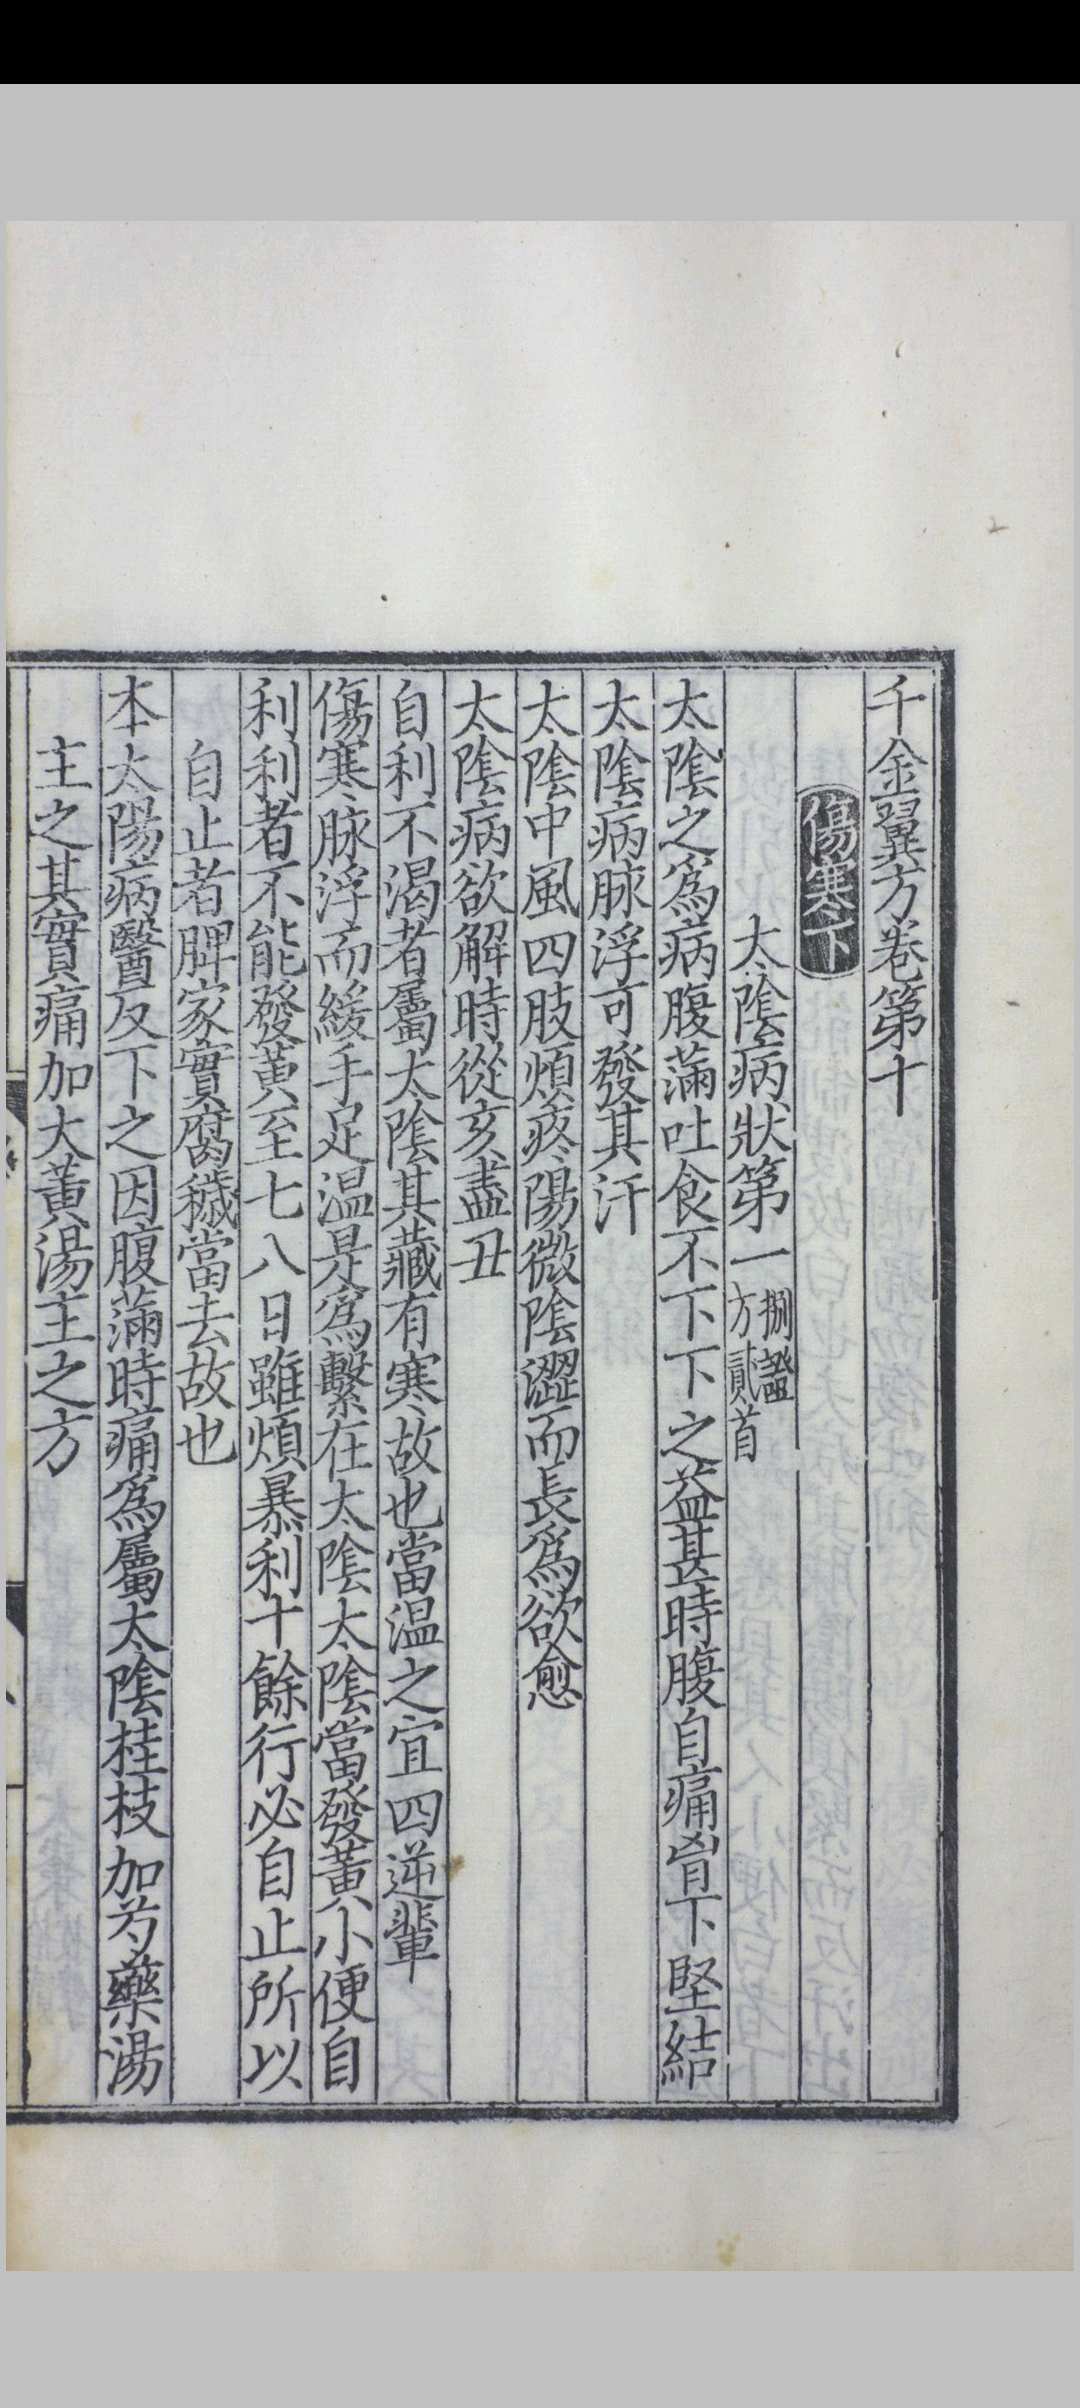 千金翼方卷第十
傷寒下
太陰病狀第一 捌證 方貳首
太陰之為病腹滿吐食不下下之益甚時腹自痛胷下堅結
太陰病脉浮可發其汗
太陰中風四肢煩疼陽微陰澀而長為欲愈
太陰病欲解時從亥盡丑
自利不渴者屬太陰其藏有寒故也當温之宜四逆輩
傷寒脉浮而緩手足温是為繫在太陰太陰當發黃小便自
利利者不能發黃至七八日雖煩暴利十餘行必自止所以
自止者脾家實腐穢當去故也
本太陽病醫反下之因腹滿時痛為屬太陰桂枝加芍藥湯
主之其實痛加大黃湯主之方